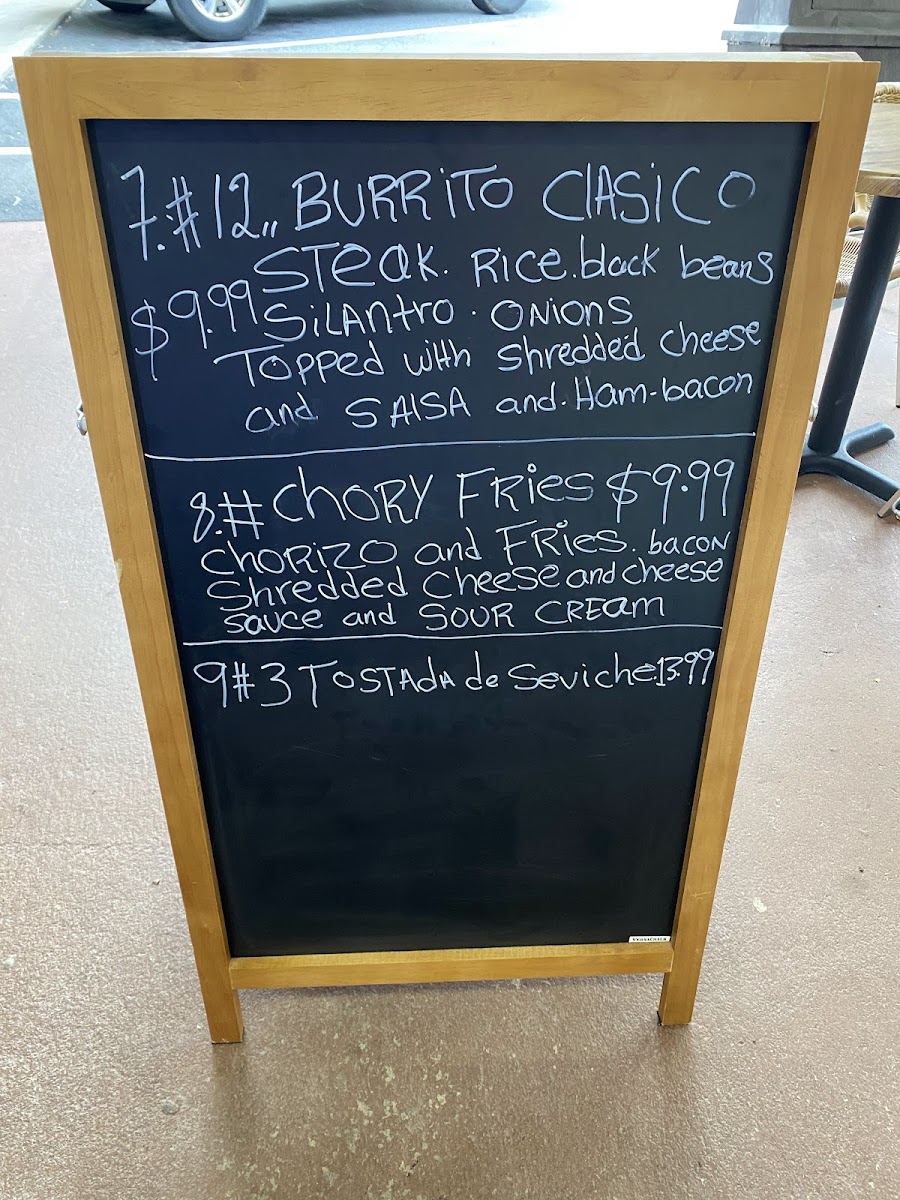 7.#12,, BURRITO ClASiCO
STeak. Rice.black beans
$9.99 SiLAntro. ONiONS
Topped with shredded cheese
and SAlSA and.Ham-bacon
8.# ChORY FRies $9.99
CHORIZO and FRies. bacon
Shredded Cheese and cheese
sauce and SOUR CREam
9#3 ToSTAdA de Seviche.13.99
VERSACHALK